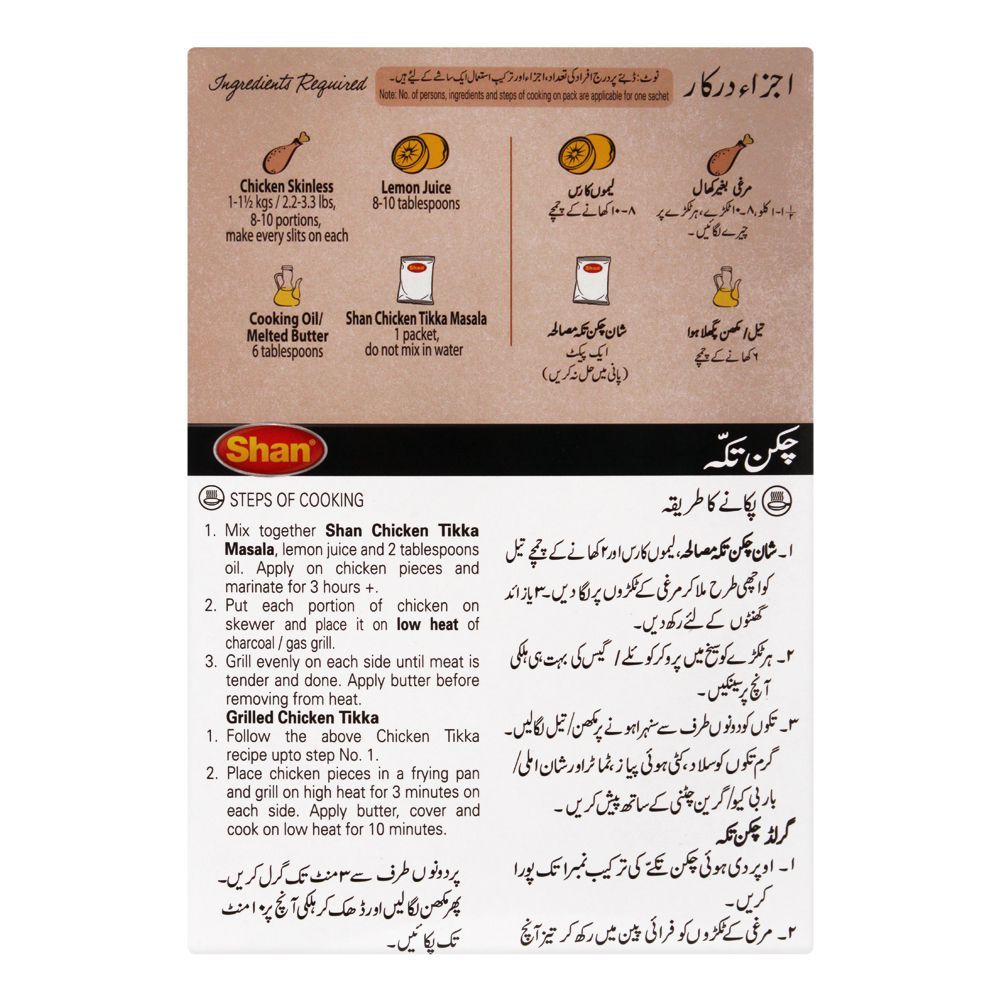 Ingredients Required
نوٹ: ڈبّے پر درج افراد کی تعداد، اجزاء اور ترکیب استعمال ایک ساشے کے لیئے ہیں۔
Note: No. of persons, ingredients and steps of cooking on pack are applicable for one sachet
اجزاء درکار
Chicken Skinless
1-1½ kgs / 2.2-3.3 lbs,
8-10 portions,
make every slits on each
Lemon Juice
8-10 tablespoons
Cooking Oil/
Melted Butter
6 tablespoons
Shan
Shan Chicken Tikka Masala
1 packet,
do not mix in water
مرغی بغیر کھال
۱-۱ ۱/۲ کلو، ۸-۱۰ ٹکڑے، ہر ٹکڑے پر
چیرے لگائیں۔
لیموں کا رس
۸-۱۰ کھانے کے چمچے
تیل / مکھن پگھلا ہوا
۶ کھانے کے چمچے
Shan
شان چکن تکہ مصالحہ
ایک پیکٹ
(پانی میں حل نہ کریں)
Shan®
چکن تکّہ
STEPS OF COOKING
1. Mix together Shan Chicken Tikka
Masala, lemon juice and 2 tablespoons
oil. Apply on chicken pieces and
marinate for 3 hours +.
2. Put each portion of chicken on
skewer and place it on low heat of
charcoal / gas grill.
3. Grill evenly on each side until meat is
tender and done. Apply butter before
removing from heat.
Grilled Chicken Tikka
1. Follow the above Chicken Tikka
recipe upto step No. 1.
2. Place chicken pieces in a frying pan
and grill on high heat for 3 minutes on
each side. Apply butter, cover and
cook on low heat for 10 minutes.
پکانے کا طریقہ
۱۔ شان چکن تکہ مصالحہ، لیموں کا رس اور ۲ کھانے کے چمچے تیل
کو اچھی طرح ملا کر مرغی کے ٹکڑوں پر لگا دیں۔ ۳ یا زائد
گھنٹوں کے لئے رکھ دیں۔
۲۔ ہر ٹکڑے کو سیخ میں پرو کر کوئلے / گیس کی بہت ہی ہلکی
آنچ پر سینکیں۔
۳۔ تکوں کو دونوں طرف سے سنہرا ہونے پر مکھن/تیل لگا لیں۔
گرم تکوں کو سلاد، کٹی ہوئی پیاز، ٹماٹر اور شان املی/
بار بی کیو/گرین چٹنی کے ساتھ پیش کریں۔
گرلڈ چکن تکہ
۱۔ اوپر دی ہوئی چکن تکّے کی ترکیب نمبر۱ تک پورا
کریں۔
۲۔ مرغی کے ٹکڑوں کو فرائی پین میں رکھ کر تیز آنچ
پر دونوں طرف سے ۳ منٹ تک گرل کریں۔
پھر مکھن لگا لیں اور ڈھک کر ہلکی آنچ پر ۱۰ منٹ
تک پکائیں۔